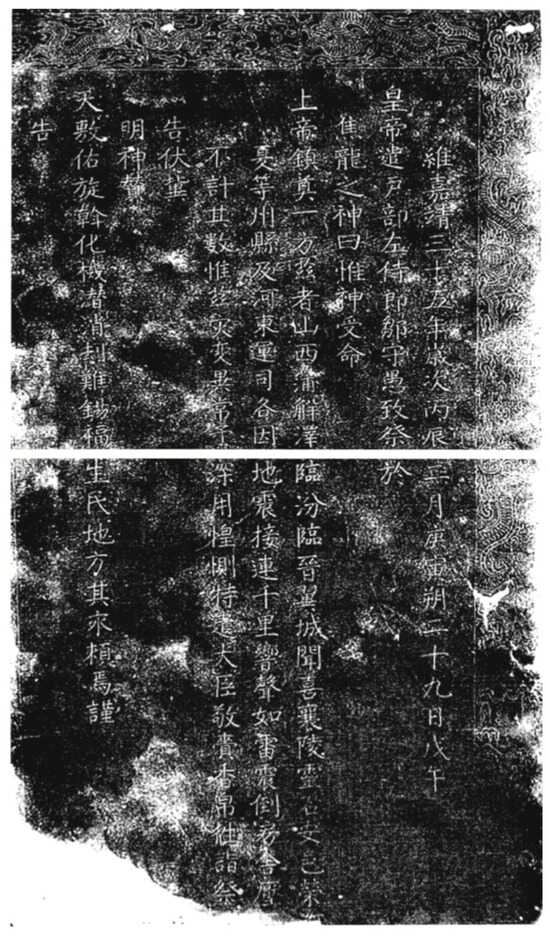 維嘉靖三十五年歲次丙辰三月庚寅朔二十九日戊午
皇帝遣戶部左侍郎鄒守愚致祭於
龍之神曰惟神受命
上帝鎮奠一方茲者山西蒲解澤臨汾臨晉翼城聞喜襄陵靈石安邑榮河
夏等州縣及河東運司各因地震接連千里響聲如雷震倒房舍壓
不計其數惟茲災變異常予深用惶惻特遣大臣敬賫香帛牲詣祭
告伏望
明神贊
天敷佑旋斡化機潜消刼難錫福生民地方其永賴焉謹
告